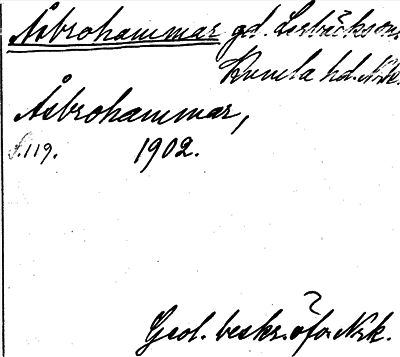 Åsbrohammar gd. Lerbäcks sn.
Kumla hd. Nrk.
Åsbrohammar,
s.119. 1902.
Geol. beskr. öfver Nrk.